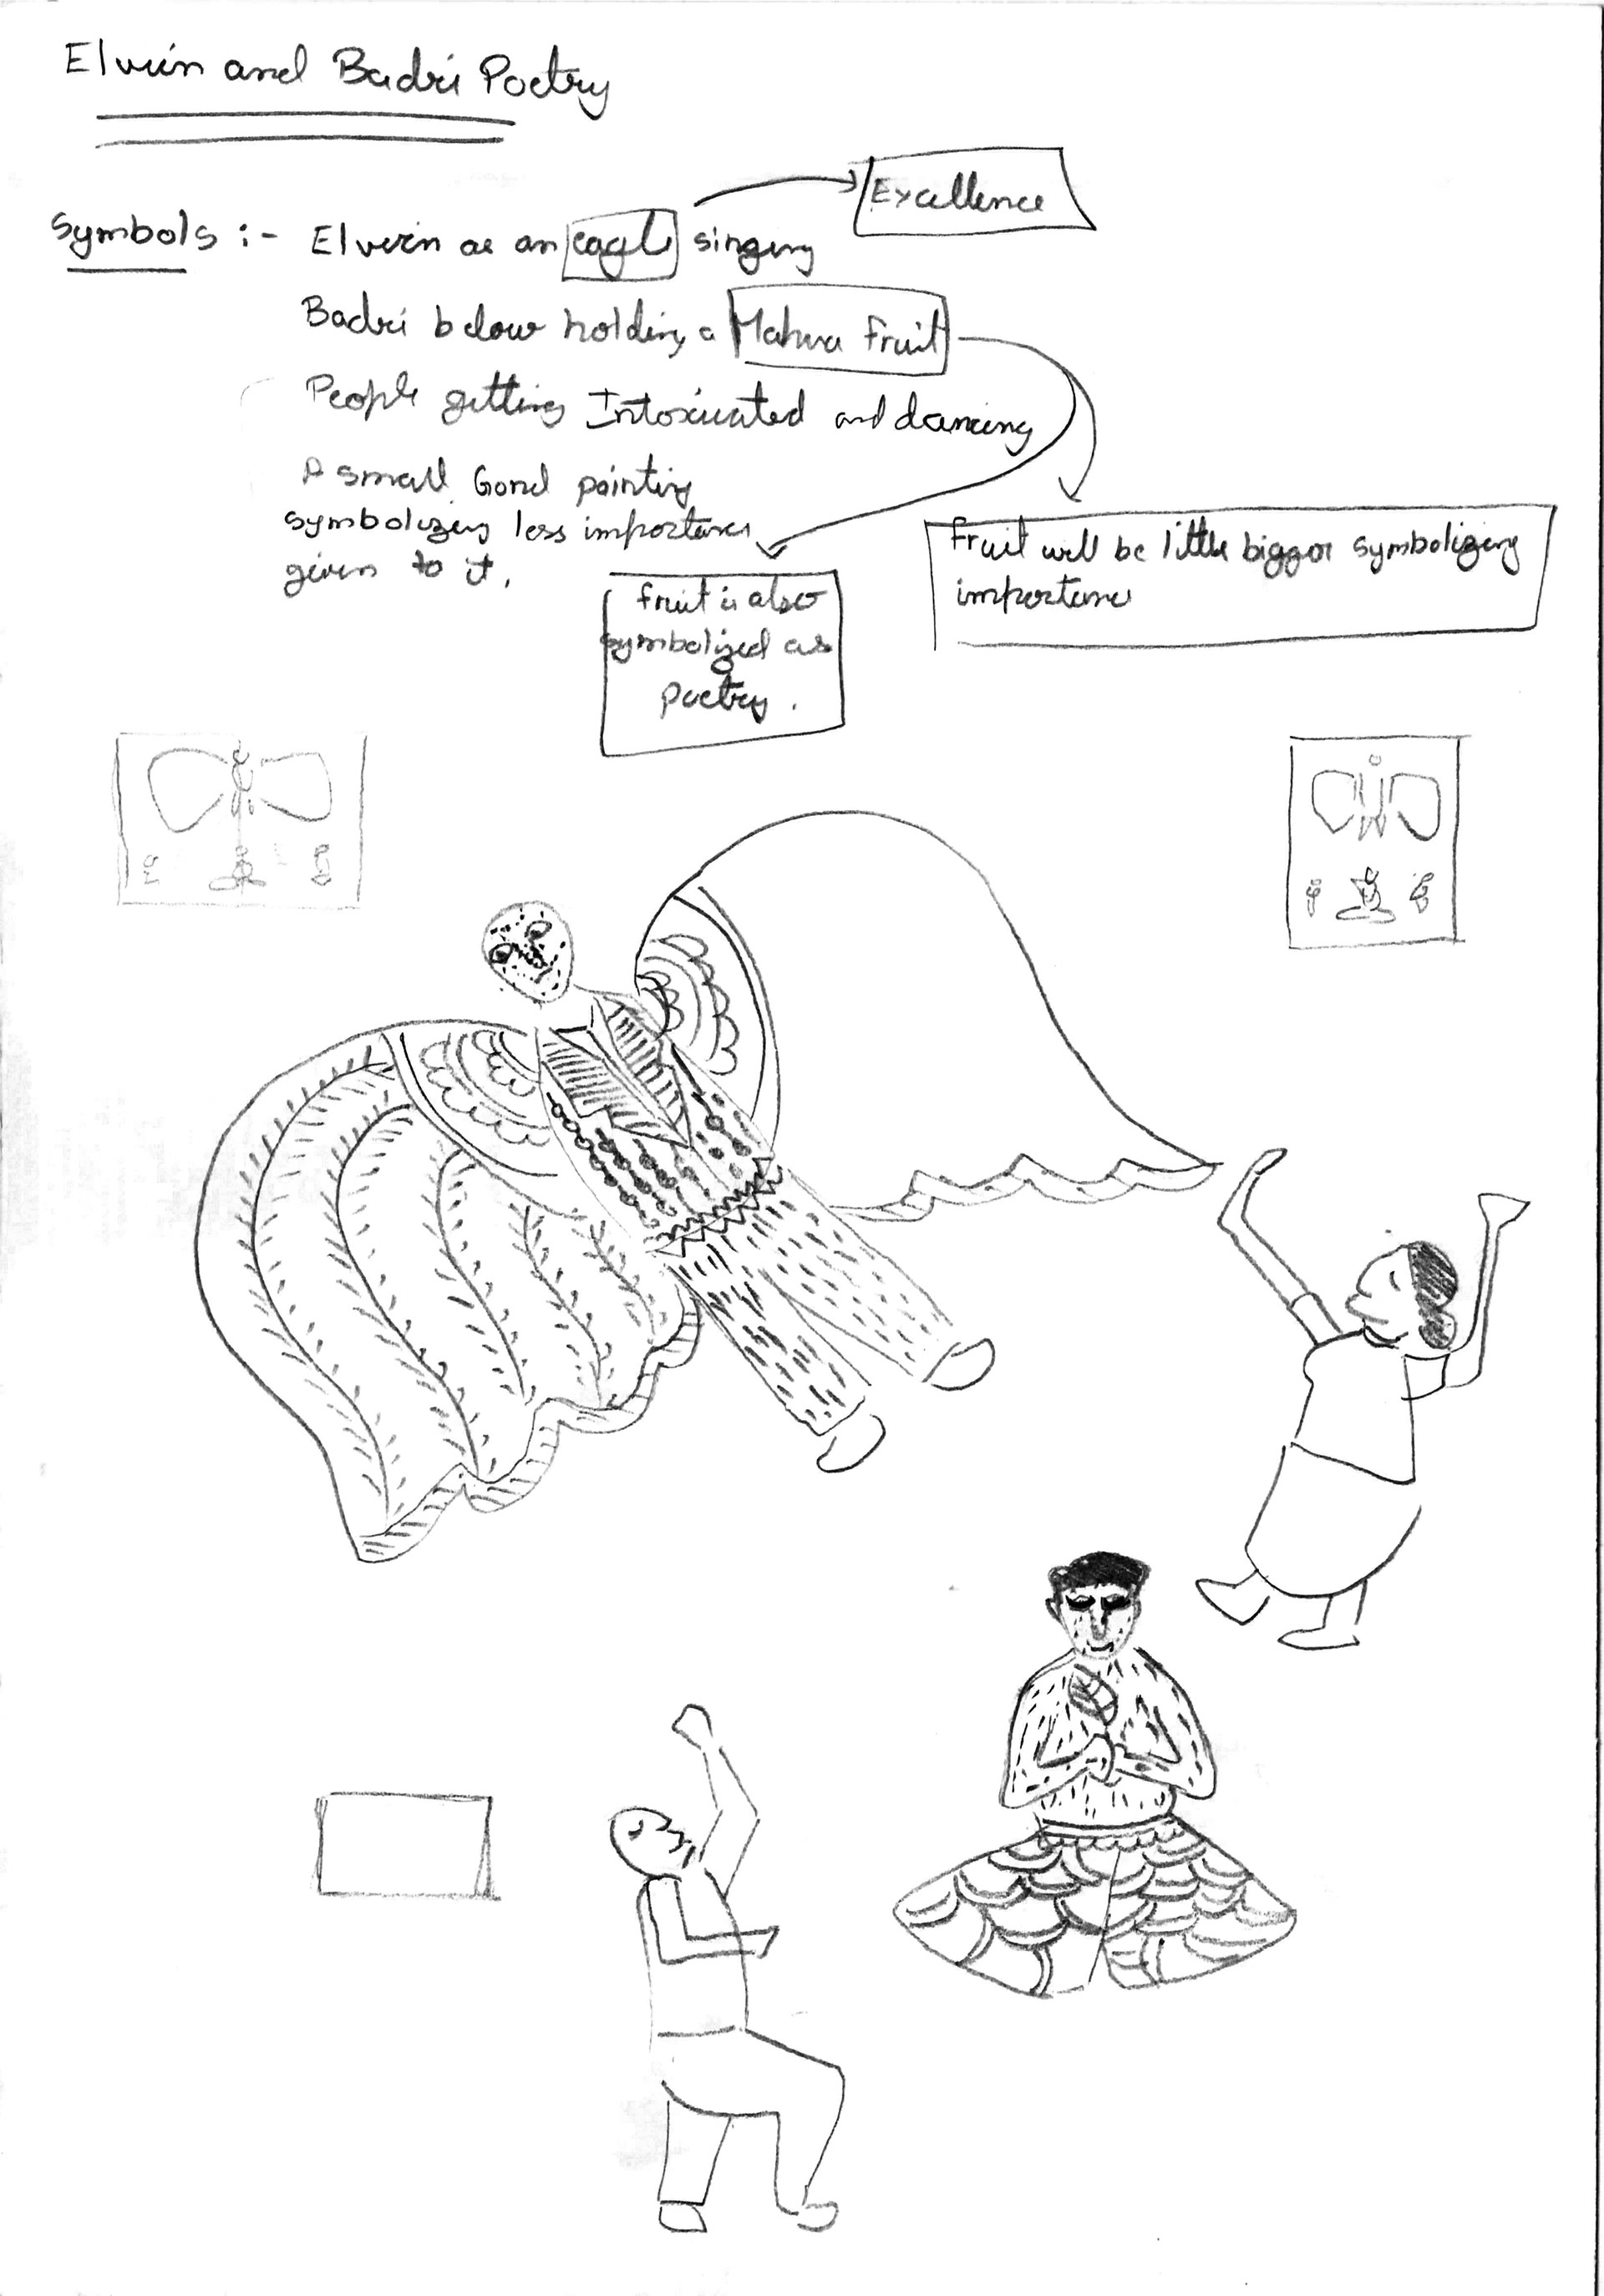 Elvin and Badri Poetry
Symbols :- Elverin as an eagle singing
Excellence
Badri below holding a Mahua Fruit
People getting Intoxicated and dancing
A small Gond painting
symbolizing less importance
given to it.
Fruit will be little bigger symbolizing
importance
fruit is also
symbolized as
poetry.